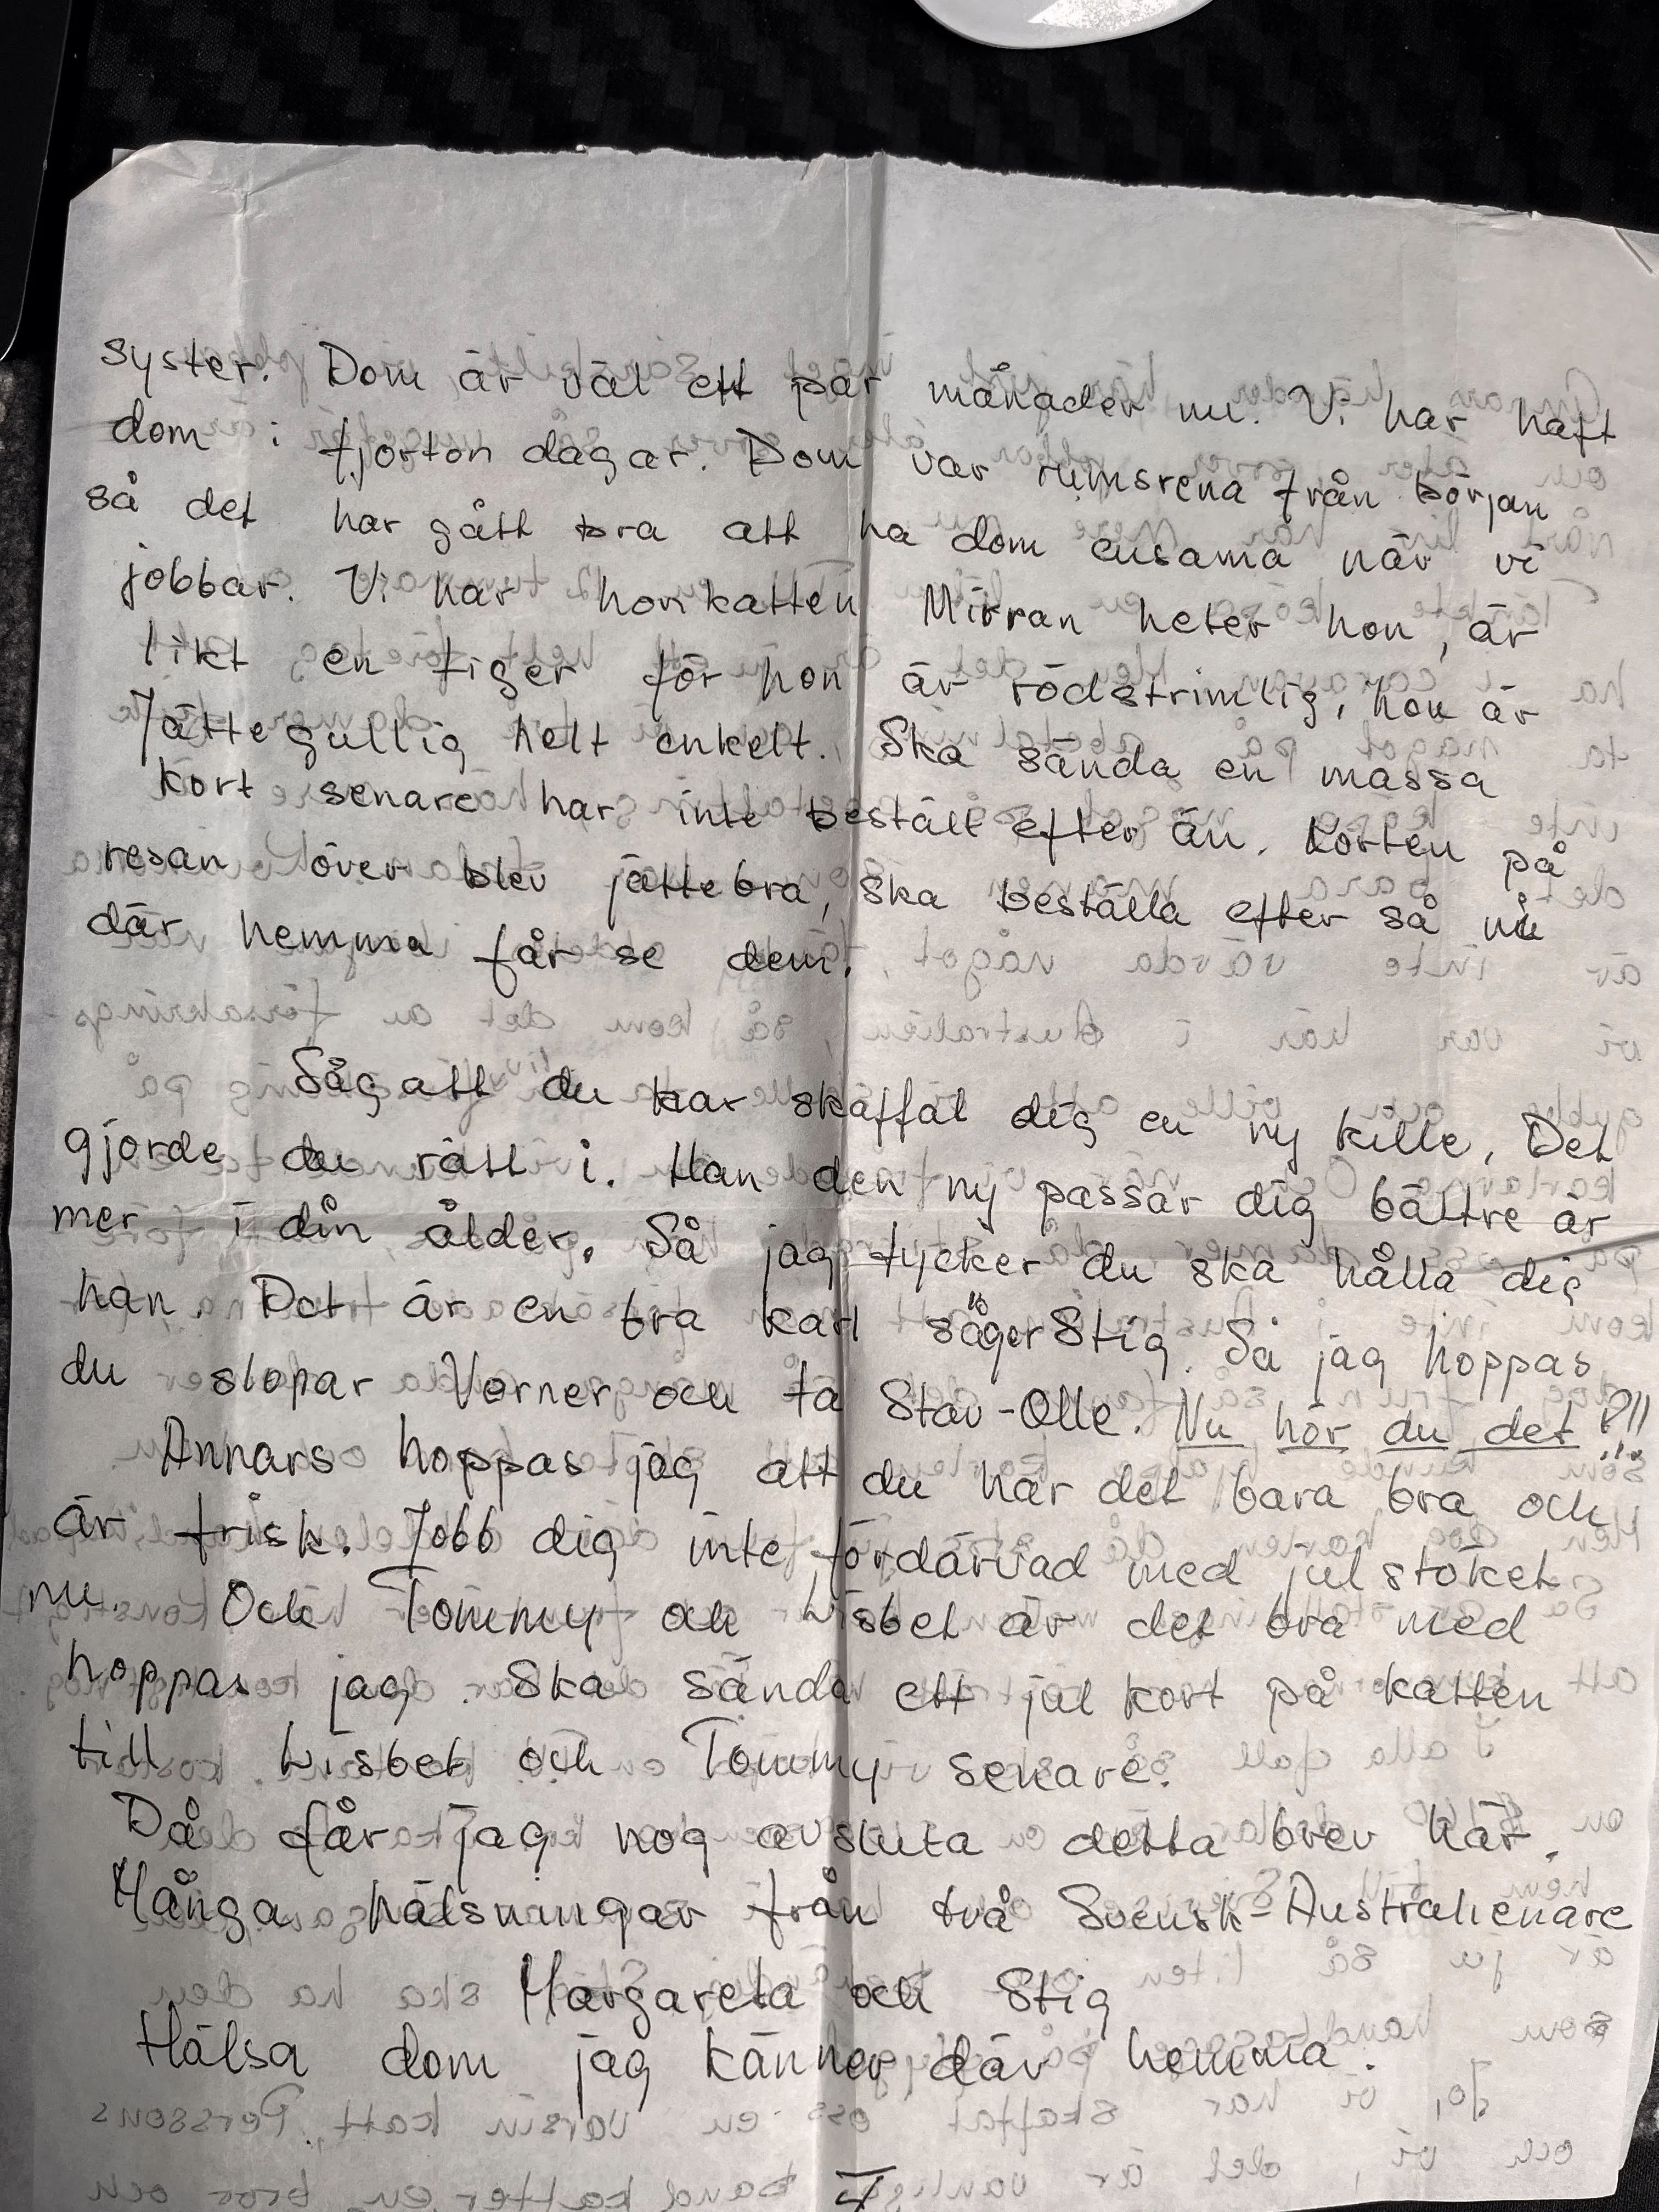 syster. Dom är väl ett par månader nu. Vi har haft
dom i fjorton dagar. Dom var rumsrena från början
så det har gått bra att ha dom ensama när vi
jobbar. Vi har honkatten Mirran heter hon, är
likt en tiger för hon är rödstrimlig, hon är
Jättegullig helt enkelt. Ska sända en massa
kort senare har inte beställt efter än. Korten på
resan över blev jättebra, ska beställa efter så ni
där hemma får se dem.
Såg att du har skaffat dig en ny kille, Det
gjorde du rätt i. Han den ny passar dig bättre är
mer i din ålder. Så jag tycker du ska hålla dig
han Det är en bra karl säger Stig. Så jag hoppas
du slopar Verner och ta Stav-Olle. Nu hör du det !!!
Annars hoppas jag att du har det bara bra och
är frisk. Jobb dig inte fördärvad med julstöket
nu. Och Tommy och Lisbet är det bra med
hoppas jag. Ska sända ett jul kort på katten
till Lisbet och Tommy senare.
Då får jag nog avsluta detta brev här.
Många hälsningar från två Svensk-Australienare
Margareta och Stig
Hälsa dom jag känner där hemma.